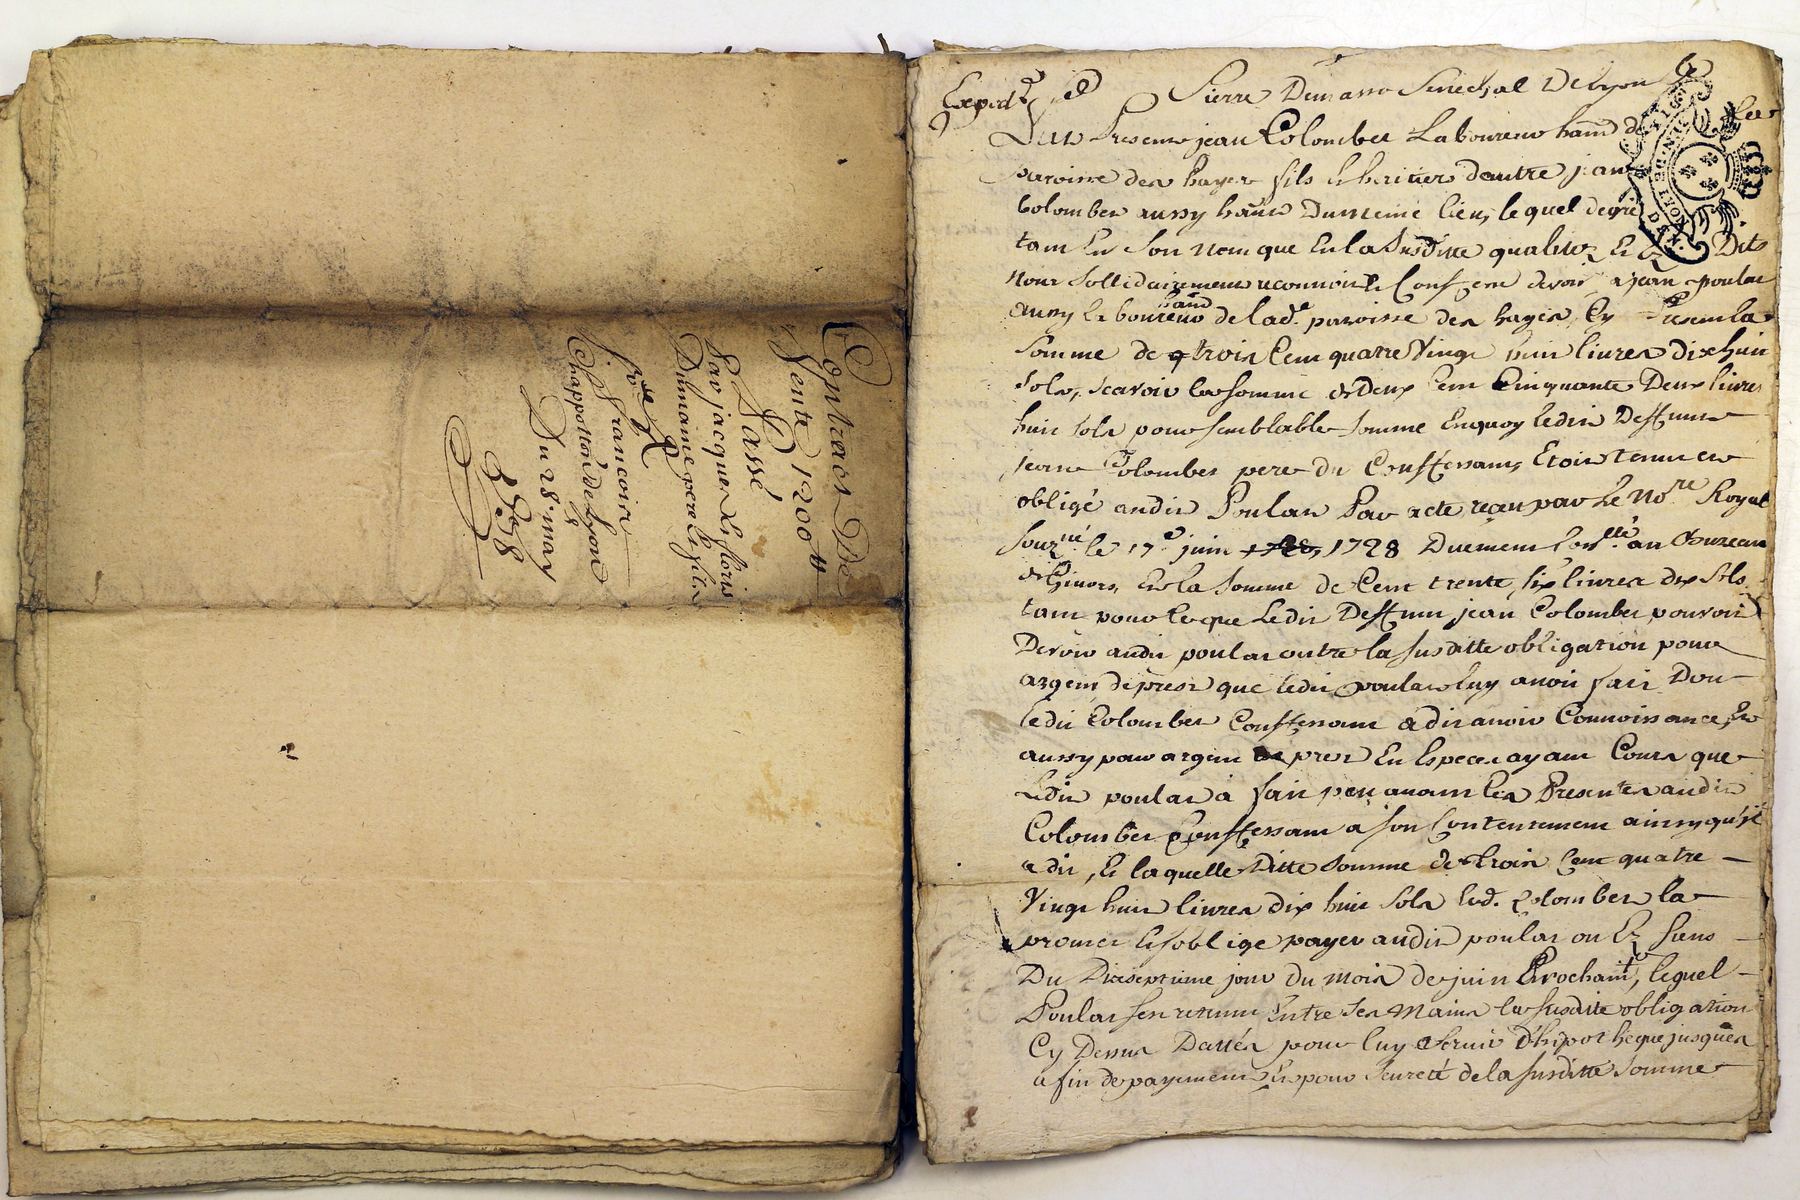 Contract De
Vente 1200 #
Passé
Par jacques
Dumaine pere & fils
françois
Du 28 may
Expedé
Pierre Senechal De Lyon
jean Colombet Laboureur
paroisse des hayes fils & heritier d'autre jean
Colombet aussy du meme lieu, lequel de gré
tant En Son Nom que En la Susditte qualité
Sollidairement reconnoit & Confesse devoir a jean poulat
aussy Laboureur de lad. paroisse des hayes Cy present la
Somme de trois Cent quatre Vingt huit livres dix huit
sols, scavoir la somme de Deux Cent Cinquante Deux livres
huit sols pour semblable Somme Enquoy ledit Deffunt
jean Colombet pere du Confessant Etoit tenu et
obligé audit Poulat Par acte reçu par Le Nore Royal
Souzné le 17e juin 1728 Duement au Bureau
de Givors, Et la Somme de Cent trente six livres dix Sols
tant pour ce que Ledit Deffunt jean Colombet pouvoit
Devoir audit poulat outre la susditte obligation pour
argent de prest que ledit poulat luy avoit fait Dont
ledit Colombet Confessant a dit avoir Connoissance, Et
aussy pour argent de prest En Especes ayant Cours que
Ledit poulat a fait peu avant les Presentes audit
Colombet Confessant a son Contentement ainsy qu'il
a dit, & laquelle Ditte Somme de trois Cent quatre
Vingt huit livres dix huit Sols led. Colombet la
promet & s'oblige payer audit poulat ou Es Siens
Du Dixseptieme jour du mois de juin Prochain, lequel
Poulat s'est retenu Entre Ses Mains la susditte obligation
Cy Dessus Dattée pour luy servir d'hipotheque jusques
a fin de payement & pour seureté de la susditte Somme